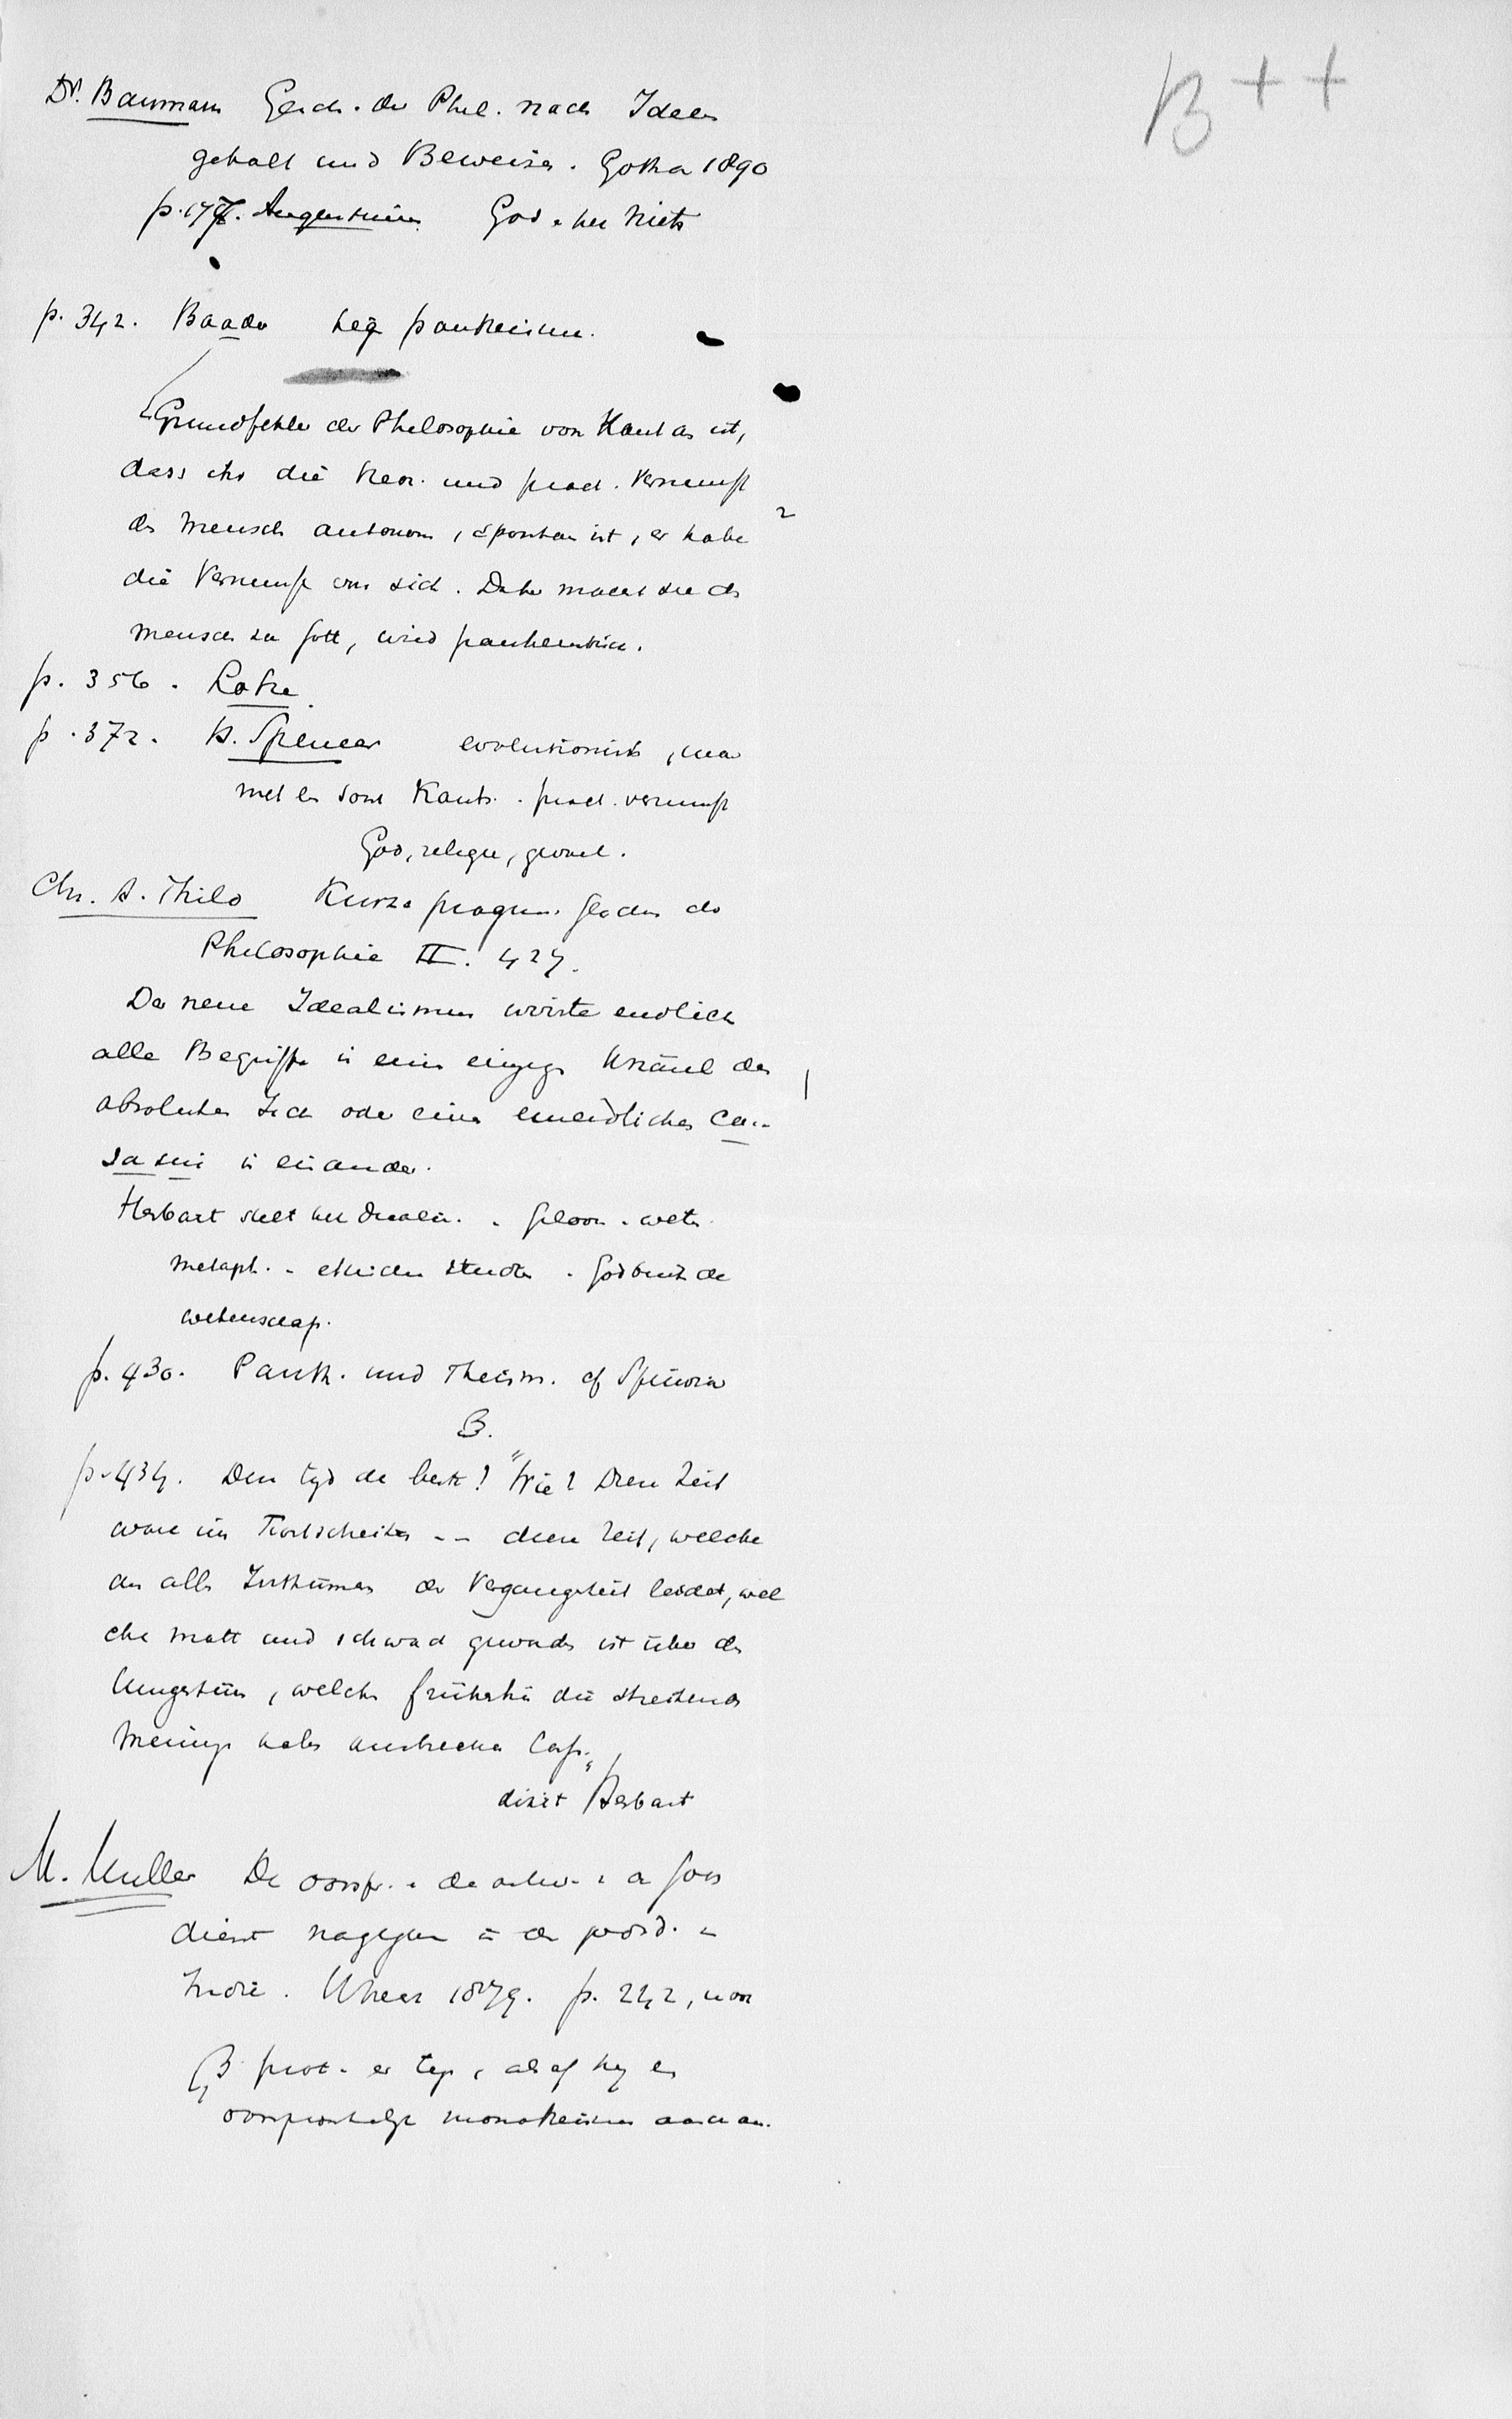 B++
Dr. Baumann Gesch. der Phil. nach Ideen
gehalt und Beweisen. Gotha 1890
p. 177. Augustinus God. het Niets
p. 342. Baader teg pantheisme.
Grundfehler der Philosophie von Kant an ist,
dass ihr die theor. und pract. Vernunft
des Mensch autonom, spontan ist, er habe 2
die Vernunft von sich. Daher macht sie den
Mensch zu Gott, wird pantheistisch.
p. 356. Lotze
p. 372. H. Spencer evolutionist, maar
met een soort Kants. pract. vernunft
God, religie,
Chr. A. Thilo Kurze pragm. Gesch. der
Philosophie II. 427.
Der neue Idealismus wirrte endlich
alle Begriffe in ein einziges Knäuel des
absoluten Ich oder einer unendlichen Cau-
sa sui in einander.
Herbart stelt het dualism. geloov. weten
metaph. ethischen godsd. de
wetenschap.
p. 430. Panth. und Theism. cf Spinoza
B.
p. 434. Den tijd de beste! "Wie? Diese Zeit
wäre im Fortschreiten -- diese Zeit, welche
an allen Irrthümern der Vergangenheit leidet, wel
che matt und schwach geworden ist über den
Ungestüm, welchen früherhin die streitenden
Meinungen haben ausbrechen lassen."
dixit Herbart
M. Muller De oorspr. de ontw. v d gods
dienst nagegaan in de godsd. v
Indië. Utrecht 1879. p. 242, noot
prot. er teg, alsof hij een
oorspronkelijk monotheisme aannam.